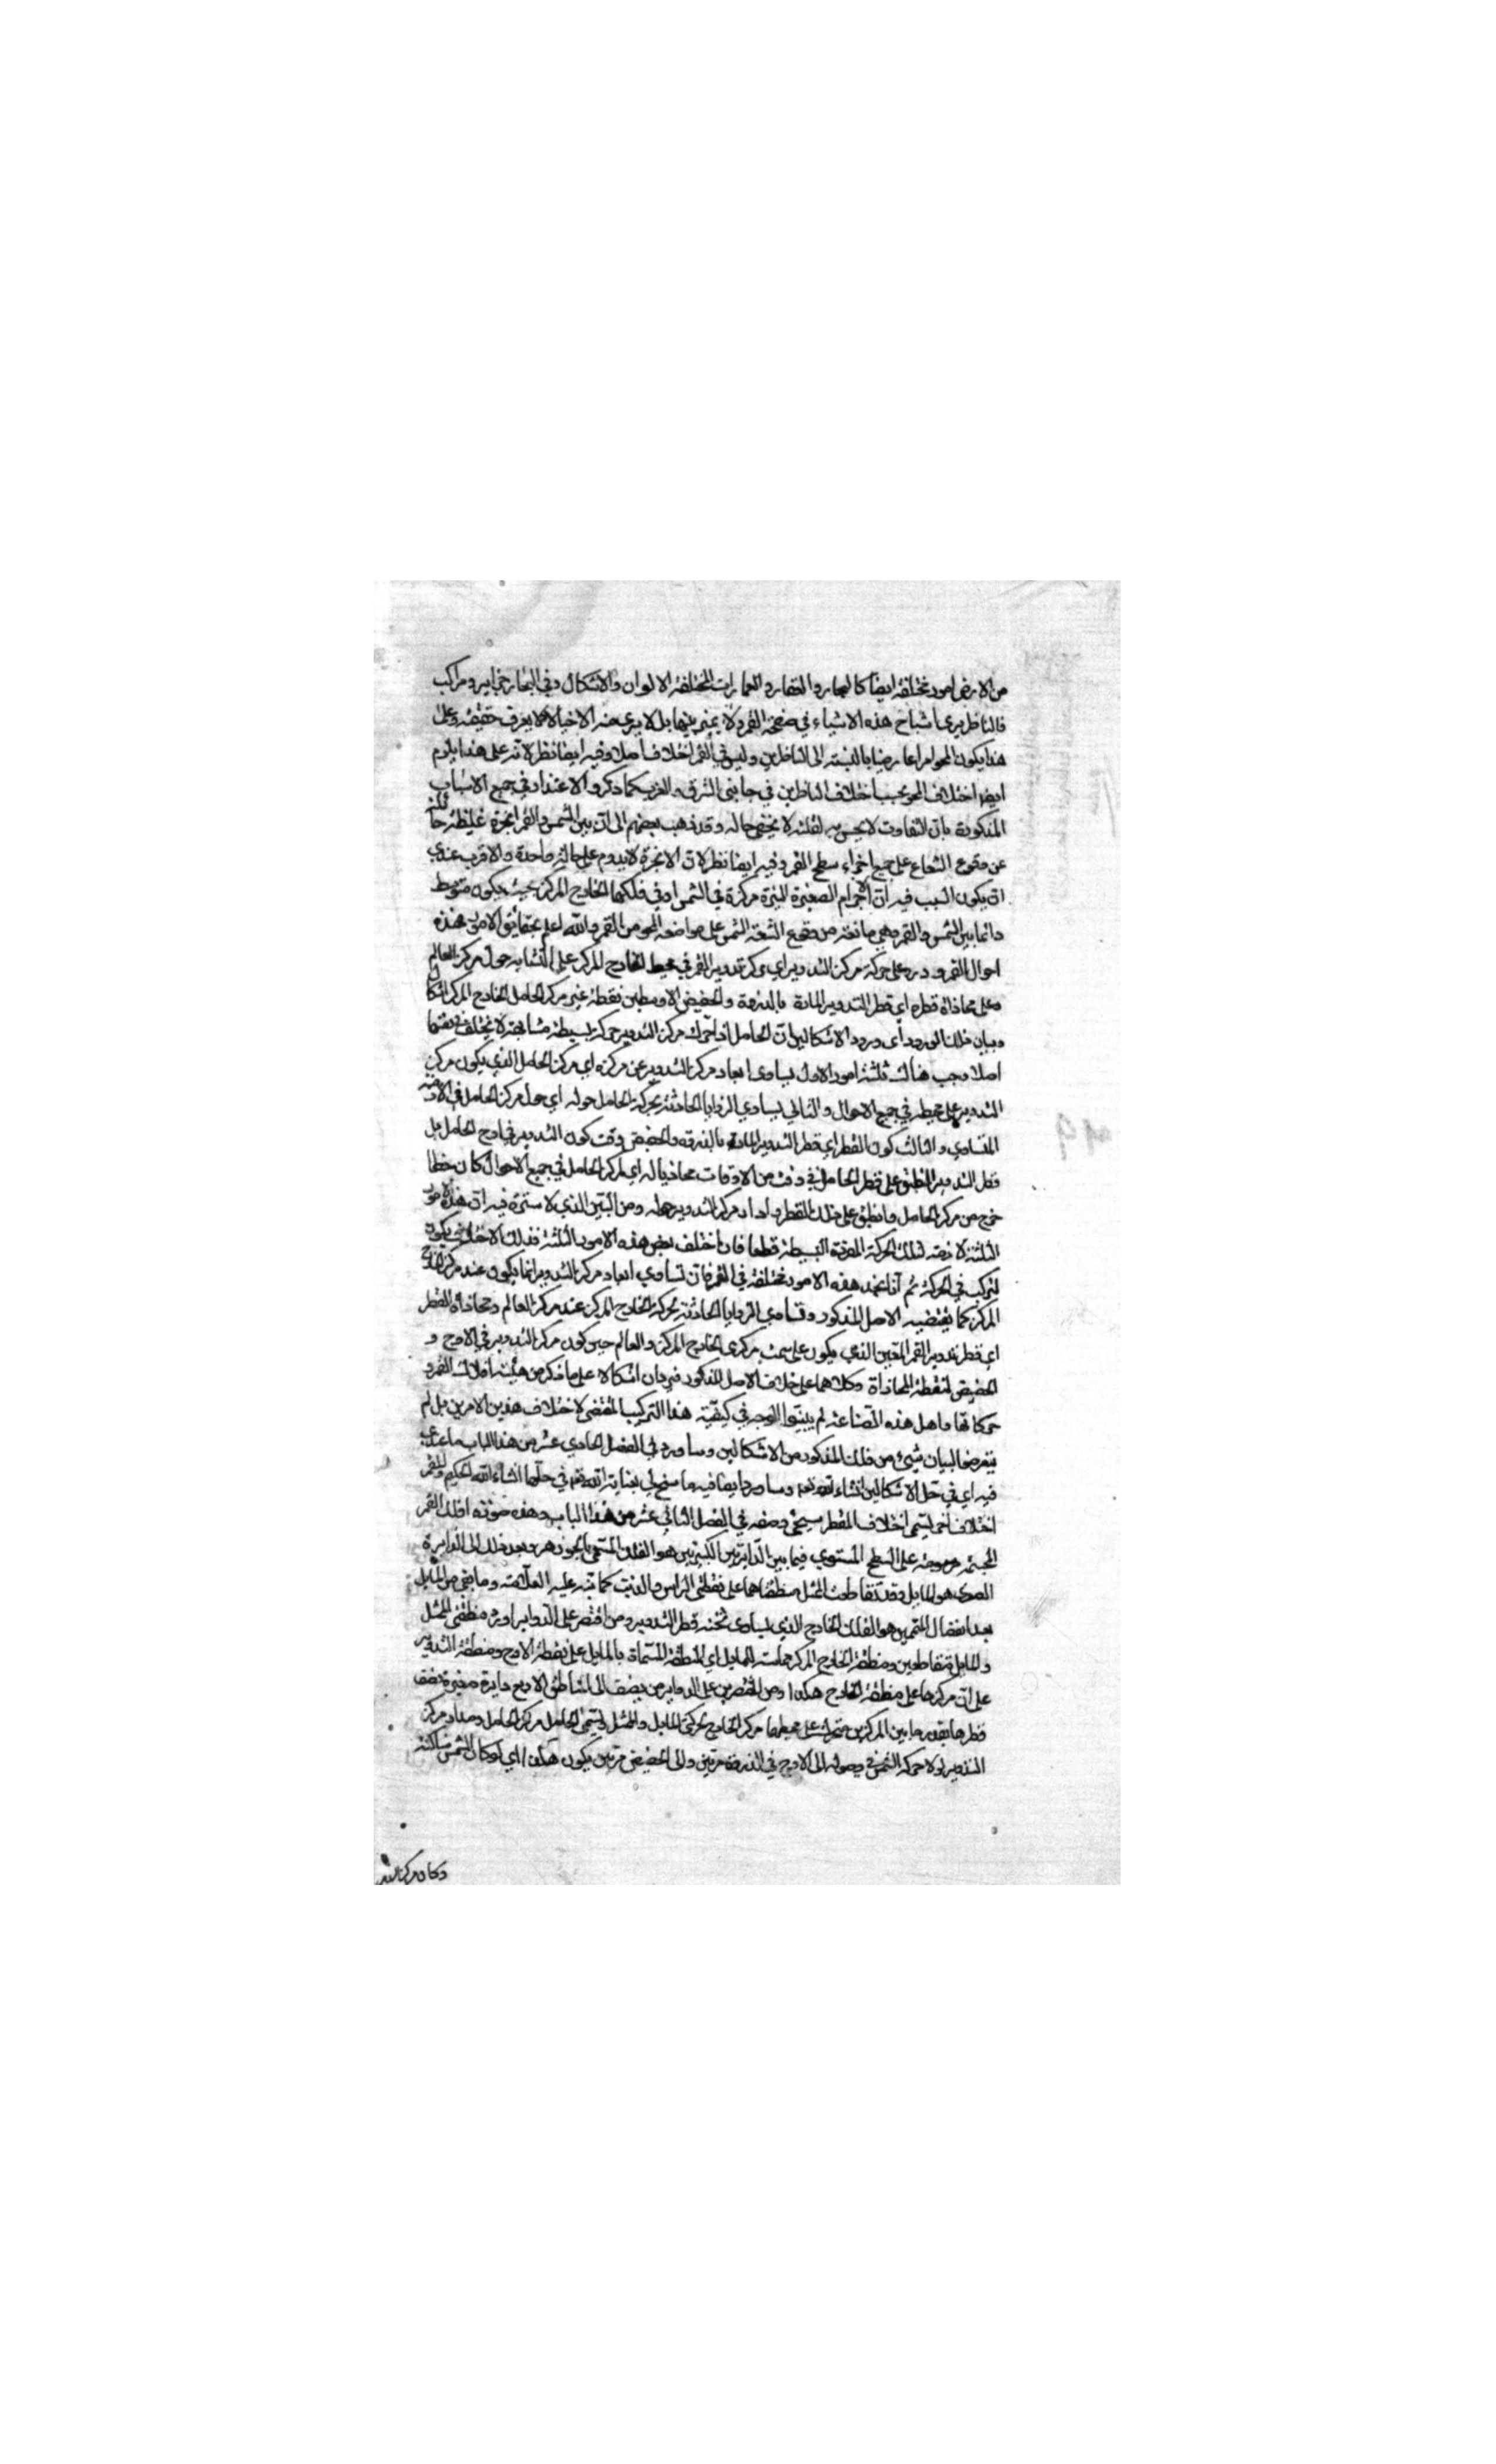 من الارض امور مختلفة ايضا كالبحار والقفار والعمارات المختلفة الالوان والاشكال وفي البحار جزاير ومراكب
فالناظر يرى اشباح هذه الاشياء في صفحة القمر ولا يميز بينها بل لا يرى منه الا خيالا لا يعرف حقيقته وعلى
هذا يكون المحو امرا عارضيا بالنسبة الى الناظرين وليس في القمر اختلاف اصلا وفيه ايضا نظر لانه على هذا يلزم
ايضا اختلاف المحو بحسب اختلاف الناظرين في جانبي الشرق والغرب كما ذكر والاعتذار في جميع الاسباب
المذكورة بان التفاوت لا يحس به لقلته لا يخفى حاله وقد ذهب بعضهم الى ان بين الشمس والقمر ابخرة غليظة
عن وقوع الشعاع على جميع اجزاء سطح القمر وفيه ايضا نظر لان الابخرة لا يدوم على حالة واحدة والاقرب عندي
ان يكون السبب فيه ان الاجرام الصغيرة النيرة مركزة في الشمس او في فلكها الخارج المركز بحيث يكون متوسط
دائما بين الشمس والقمر وهي مانعة من وقوع اشعة الشمس على مواضع المحو من القمر والله اعلم بحقائق الامور فهذه
احوال القمر ويرد على حركة مركز التدوير اي مركز تدوير القمر في محيط الخارج المركز على التشابه حول مركز العالم
وعلى محاذاة قطره اي قطر التدوير المارة بالذروة والحضيض الاوسطين نقطة غير مركز الحامل الخارج المركز اشكال
وبيان ذلك الورود اي ورود الاشكالين ان الحامل اذا حرك مركز التدوير حركة بسيطة متشابهة لا يختلف
اصلا وجب هناك ثلثة امور الاول تساوي ابعاد مركز التدوير عن مركزه اي مركز الحامل الذي يكون مركز
التدوير على محيطه في جميع الاحوال والثاني تساوي الزوايا الحادثة بحركة الحامل حوله اي حول مركز الحامل في الازمنة
المتساوي والثالث كون القطر اي قطر التدوير المارة بالذروة والحضيض وقت كون التدوير في اوج الحامل بل
قطر التدوير المنطبق على قطر الحامل في وقت من الاوقات محاذيا له اي لمركز الحامل في جميع الاحوال كان خطا
خرج من مركز الحامل وانطبق على ذلك القطر وادار مركز التدوير حوله ومن البين الذي لا سترة فيه ان هذه الامور
الثلثة لازمة لتلك الحركة المفردة البسيطة قطعا فان اختلف بعض هذه الامور الثلثة فذلك الاختلاف يكون
لتركب في الحركة ثم انا نجد هذه الامور مختلفة في القمر فان تساوي ابعاد مركز التدوير انما يكون عند مركز الخارج
المركز كما يقتضيه الاصل المذكور وتساوي الزوايا الحادثة بحركة الخارج المركز عند مركز العالم ومحاذاة القطر
اي قطر تدوير القمر المعين الذي يكون على سمت مركزي الخارج المركز والعالم حين كون مركز التدوير في الاوج و
الحضيض لنقطة المحاذاة وكلاهما على خلاف الاصل المذكور فيردان اشكالا على ما ذكر من هيئة افلاك القمر و
حركاتها واهل هذه الصناعة لم يبينوا الوجه في كيفية هذا التركيب المقتضي لاختلاف هذين الامرين بل لم
يتعرضوا لبيان شيئ من ذلك المذكور من الاشكالين وساورد في الفصل الحادي عشر من هذا الباب ما عندي
فيه اي في حل الاشكالين انشاء الله تعالى وساورد ايضا فيه ما سنح لي بعناية الله تعالى في حلهما انشاء الله الحكيم وللقمر
اختلاف اخر يسمى اختلاف المنظر سيجئ وصفه في الفصل الثاني عشر من هذا الباب وهذه صورة افلاك القمر
المجسمة مرسومة على السطح المستوي فيما بين الدايرتين الكبيرتين هو الفلك المسمى بالجوزهر وبعد ذلك الى الدايرة
الصغرى هو المايل وقد تقاطعت الممثل منطقتاهما على نقطتي الراس والذنب كما نبه عليه العلامة وما بقي من المايل
بعد انفصال المتممين هو الفلك الخارج الذي يساوي ثخنه قطر التدوير ومن اقتصر على الدواير اورد منطقتي الممثل
والمايل متقاطعين ومنطقة الخارج المركز مماسة للمايل اي المنطقة المسماة بالمايل على نقطة الاوج ومنطقة التدوير
على ان مركزها على منطقة الخارج هكذا ومن المقتصرين على الدواير من يضيف الى المناطق الاربع دايرة صغيرة نصف
قطرها بقدر ما بين المركزين متحرك على محيطها مركز الخارج بحركتي المايل والممثل ويسمى الحامل مركز الحامل ومدار مركز
التدوير لولا حركة الشمس في وصوله الى الاوج في الدورة مرتين والى الحضيض مرتين يكون هكذا اي لو كان الشمس ساكنة
وكان مركز